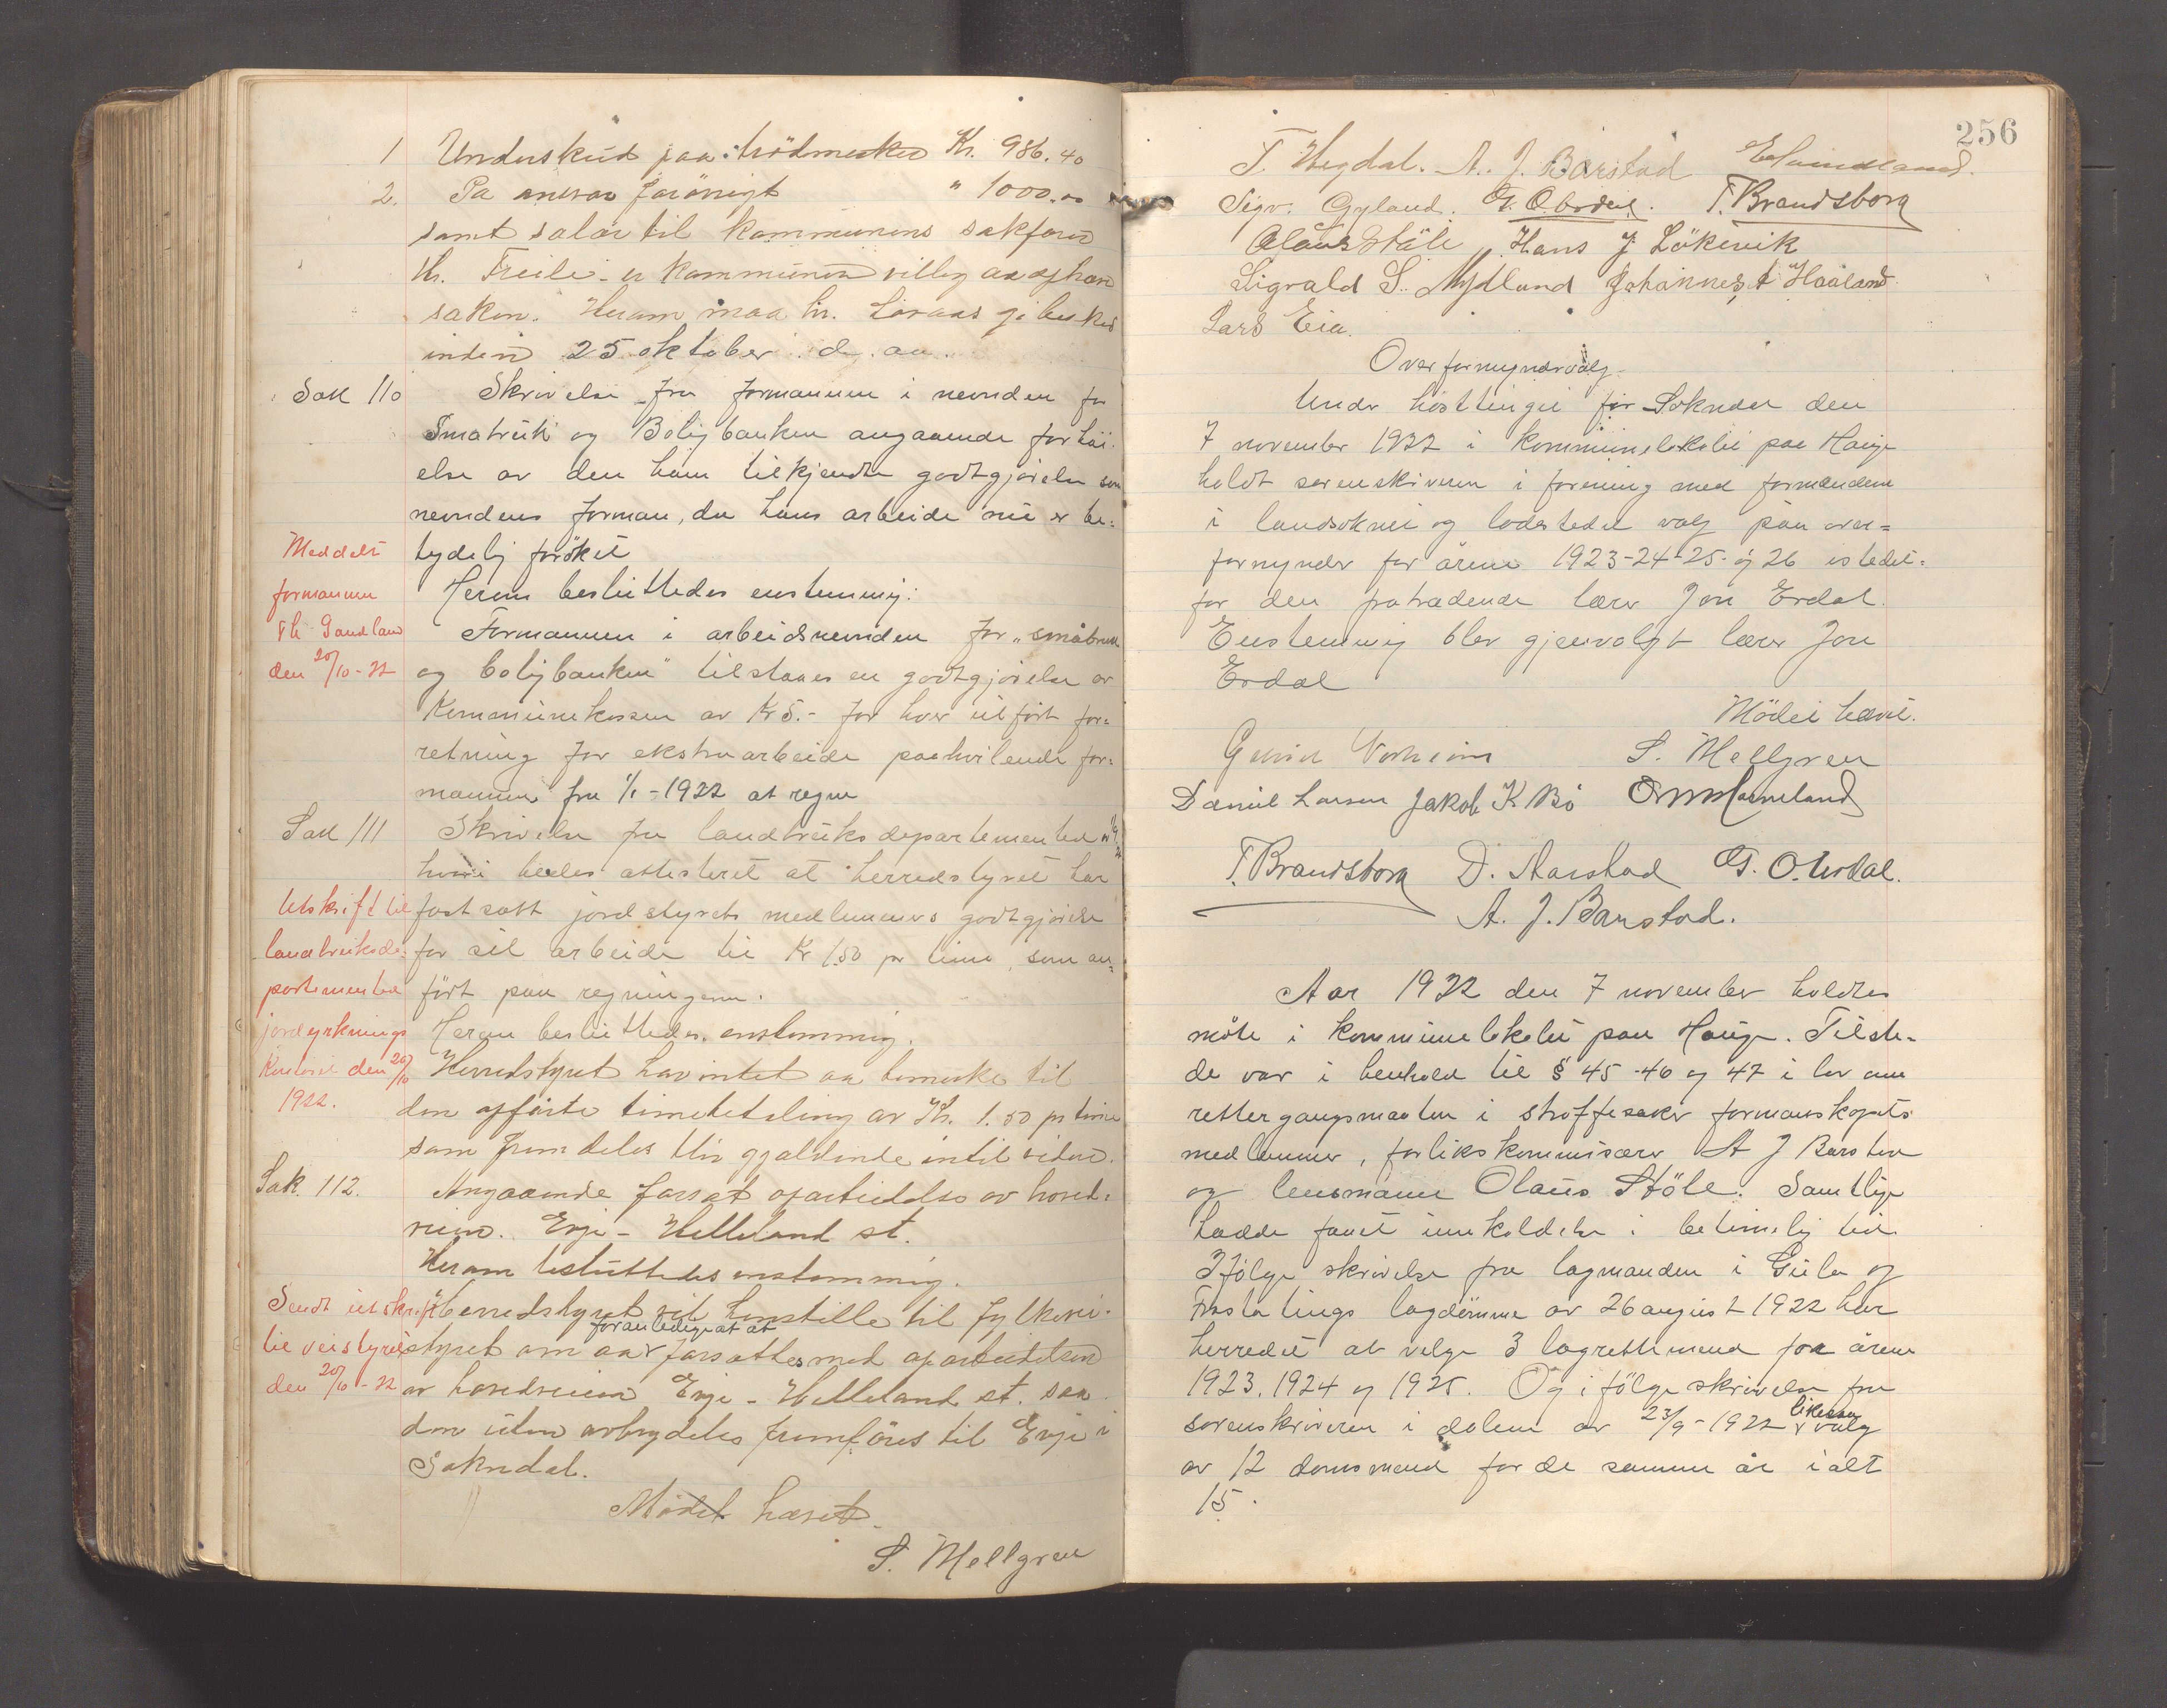 1 Underskud paa brödmerker Kr. 986.40
2. Pa ansvar forövrigt " 1000.00
samt salær til kommunens sakförer
hr. Freili - er kommunen villig aa ophæve
saken. Herom maa hr. Lavaas gi besked
inden 25 oktober d. aa.
Sak 110 Skrivelse fra formannen i nevnden for
Småbruk og Boligbanken angaaende forhöi-
else av den ham tilkjendte godtgjörelse som
nevndens forman, da hans arbeide nu er be-
tydelig foröket
Meddelt
formannen
Th Sandland
den 20/10-22
Herom besluttedes enstemmig:
Formannen i arbeidsnevnden for "småbruk
og boligbanken" tilstaaes en godtgjörelse av
Kommunekassen av Kr 5.- for hver utfört for-
retning for ekstraarbeide paahvilende for-
mannen fra 1/1-1922 at regne
Sak 111 Skrivelse fra landbruksdepartementet av
hvori bedes attestert at herredstyret har
fastsatt jordstyrets medlemmers godtgjörelse
for sit arbeide til Kr 1.50 pr time, som an-
fört paa regningene.
Utskrift til
landbruksde-
partementet
jordyrknings
Kontoret den 20/10
1922.
Herom besluttedes enstemmig.
Herredstyret har intet aa bemerke til
den opförte timebetaling av Kr. 1.50 pr time
som fremdeles blir gjældende intil videre.
Sak 112. Angaaende forsat oparbeidelse av hoved-
veien. Eige - Helleland st.
Herom besluttedes enstemmig.
Herredstyret vil henstille til fylkesvei-
styret om aa foranledige at at forsattes med oparbeidelsen
av hovedveien Eige - Helleland st. saa
den uten avbrydelse fremföres til Eige i
Sokndal.
Sendt utskrift
til veistyret
den 20/10-22
Mödet hævet.
S. Mellgren
256
T. Hegdal. A. J. Barstad E Svindland.
Sigv. Gyland. G. O. Urdal. T. Brandsborg
Olaus Stöle Hans J. Lökervik
Sigvald S. Mydland Johannes A Haaland
Lars Eia.
Overformyndervalg.
Under hösttinget for Sokndal den
7 november 1922 i kommunelokalet paa Hauge
holdt sorenskriveren i forening med formændene
i landsoknet og ladestedet valg paa over-
formynder for årene 1923-24-25- og 26 istedet-
for den fratrædende lærer Jon Erdal.
Enstemmig blev gjenvalgt lærer Jon
Erdal
Mödet hævet.
S. Mellgren
Daniel Larsen Jakob K. Bö
T. Brandsborg D. Aarstad G. O. Urdal.
A. J. Barstad.
Aar 1922 den 7 november holdtes
möte i kommunelokalet paa Hauge. Tilste-
de var i henhold til § 45-46 og 47 i lov om
rettergangsmaaten i straffesaker formanskapets
medlemmer, forlikskommisær A J Barstad
og lensmann Olaus Stöle. Samtlige
hadde faaet innkaldelse i betimelig tid.
Ifölge skrivelse fra lagmanden i Gula og
Frosta tings lagdömme av 26 august 1922 har
herredet at velge 3 lagrettemend for årene
1923. 1924 og 1925. Og i fölge skrivelse fra
sorenskriveren i dalene av 23/9-1922 likesaa valg
av 12 domsmend for de samme år i alt
15.